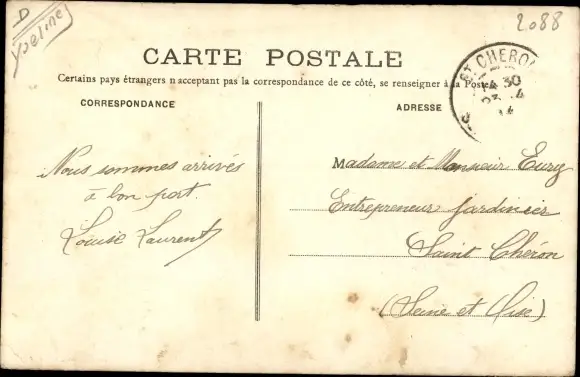 D
Yveline
2088
CARTE POSTALE
Certains pays étrangers n acceptant pas la correspondance de ce côté, se renseigner à la Poste
CORRESPONDANCE
ADRESSE
ST CHERON
30
4
Nous sommes arrivés
à bon port.
Louise Laurent
Madame et Monsieur Eury
Entrepreneur Jardinier
Saint Chéron
(Seine et Oise)